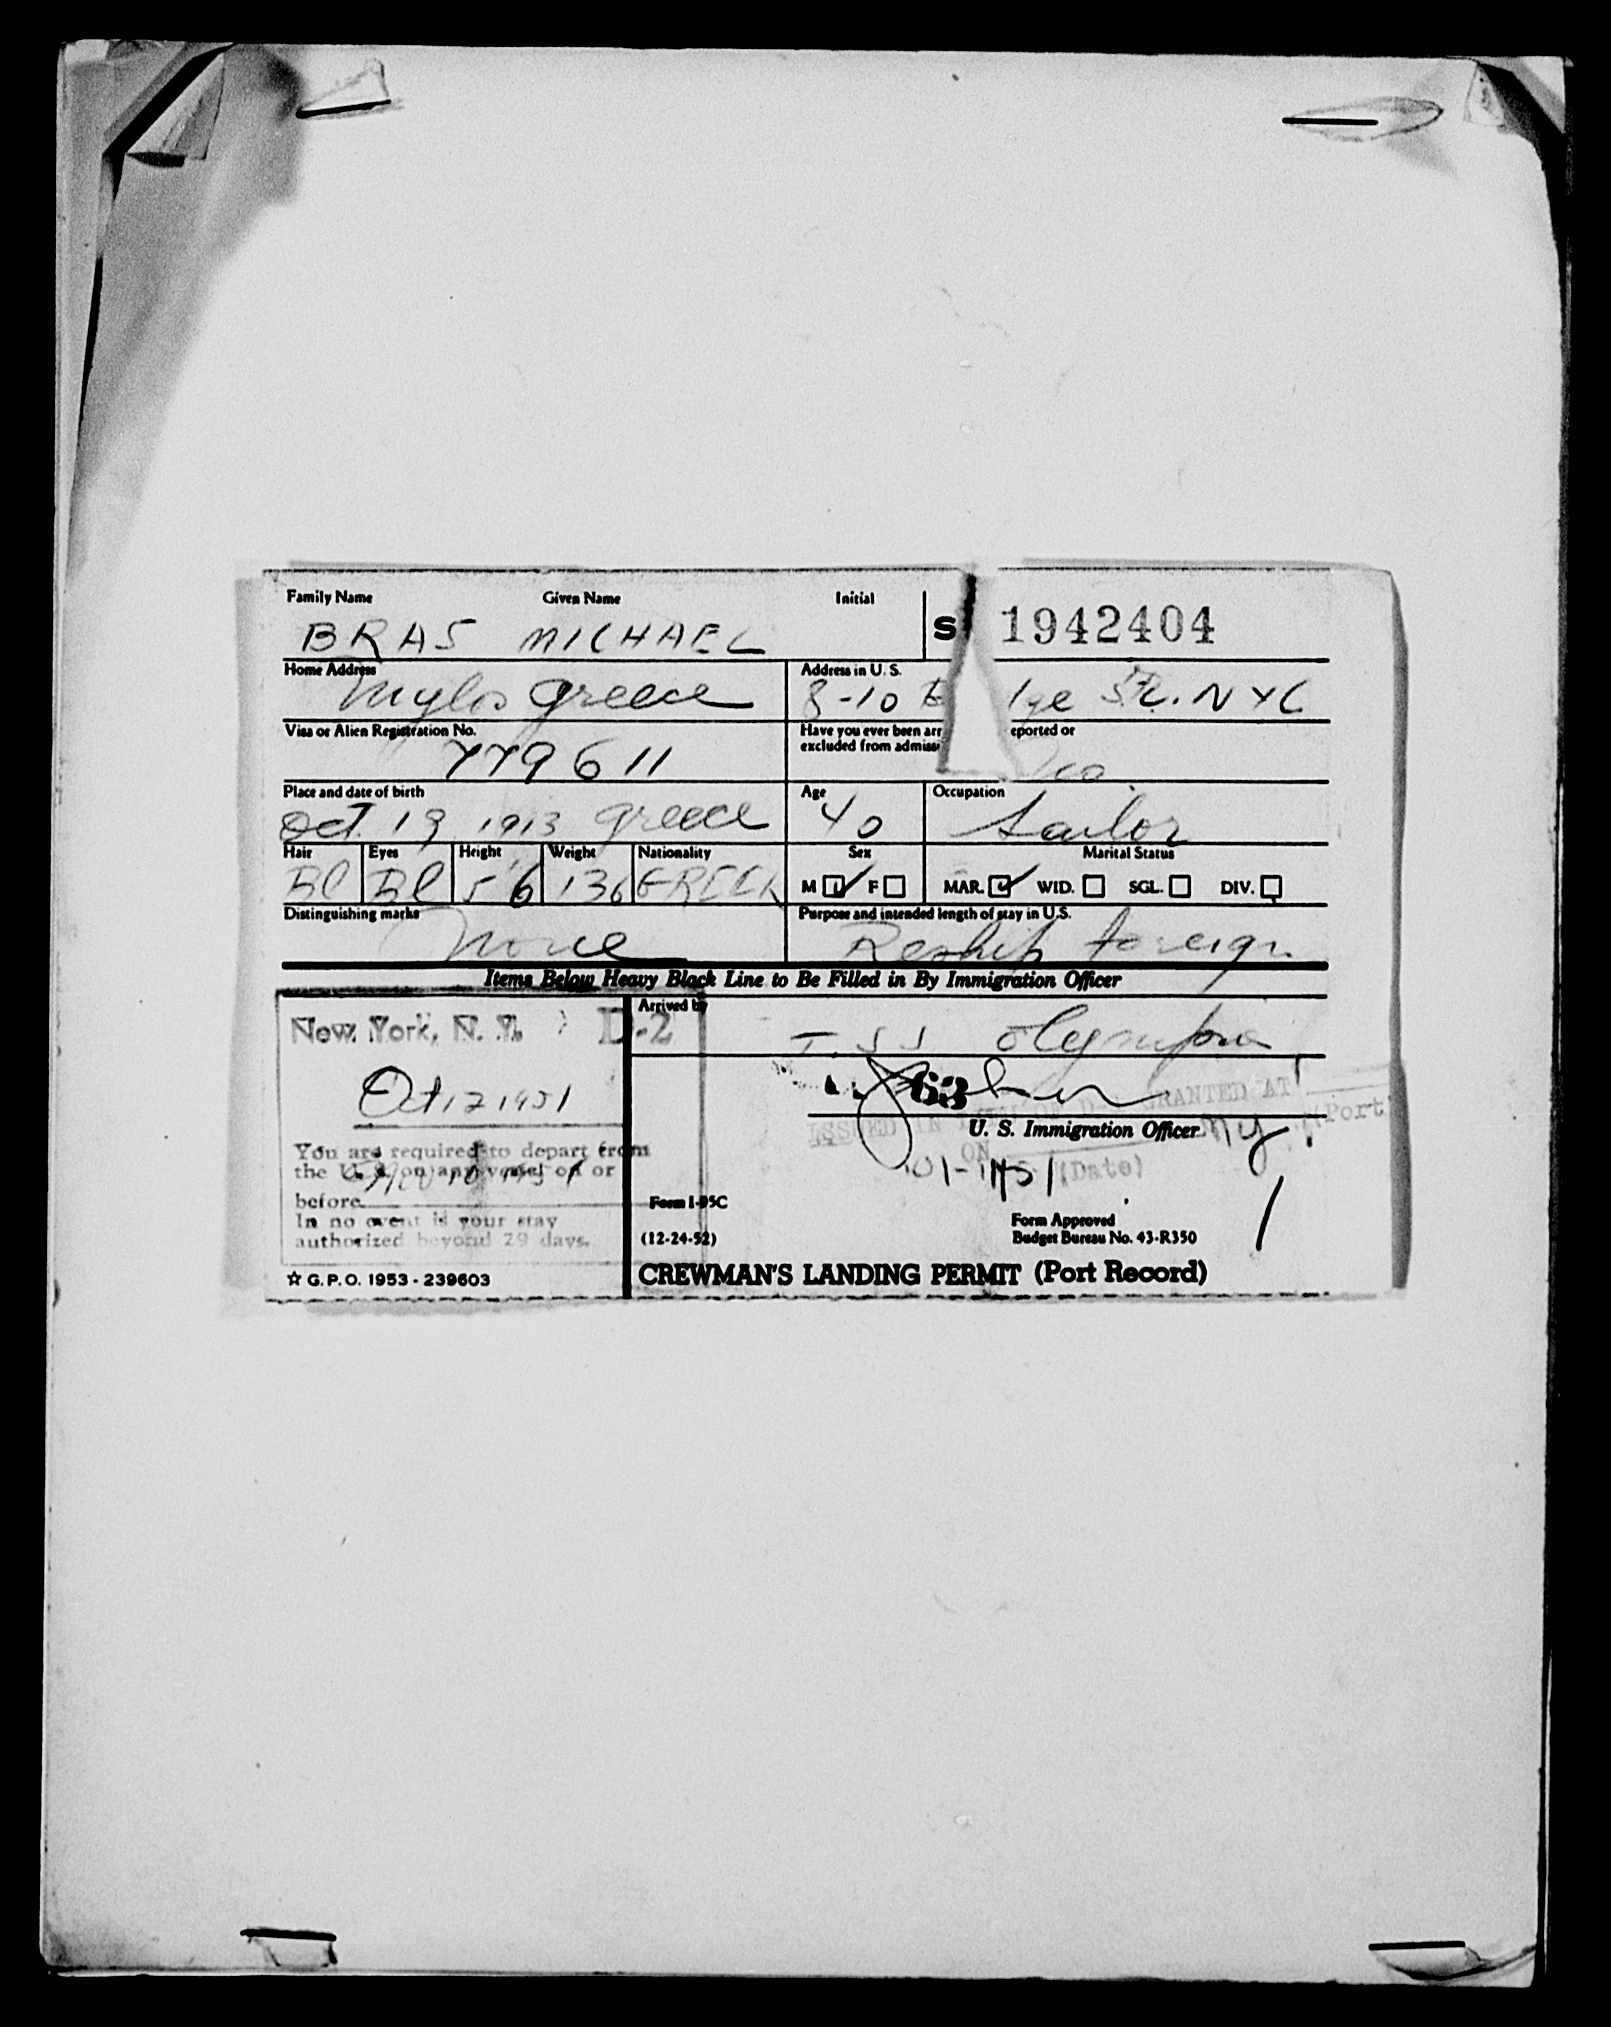 Family Name Given Name Initial
BRAS MICHAEL S 1942404
Home Address Address in U. S.
Mylos Greece 8-10 ge St. NYC
Visa or Alien Registration No. Have you ever been arr eported or
excluded from admiss
779611 No
Place and date of birth Age Occupation
Oct. 19 1913 Greece 40 Sailor
Hair Eyes Height Weight Nationality Sex Marital Status
Bl Bl 5'6 136 GREEK M F MAR. WID. SGL. DIV.
Distinguishing marks Purpose and intended length of stay in U.S.
None Reship foreign
Items Below Heavy Black Line to Be Filled in By Immigration Officer
Arrived by
New York, N. Y. D-2 T.SS Olympia
63
Oct 12 1951
ISSUED IN OF D- GRANTED AT
U. S. Immigration Officer NY (Port
ON (Date)
You are required to depart from
the U.S. on any vessel on or
before
In no event is your stay
authorized beyond 29 days.
Form I-95C
(12-24-52)
Form Approved
Budget Bureau No. 43-R350
☆ G.P.O. 1953-239603
CREWMAN'S LANDING PERMIT (Port Record)